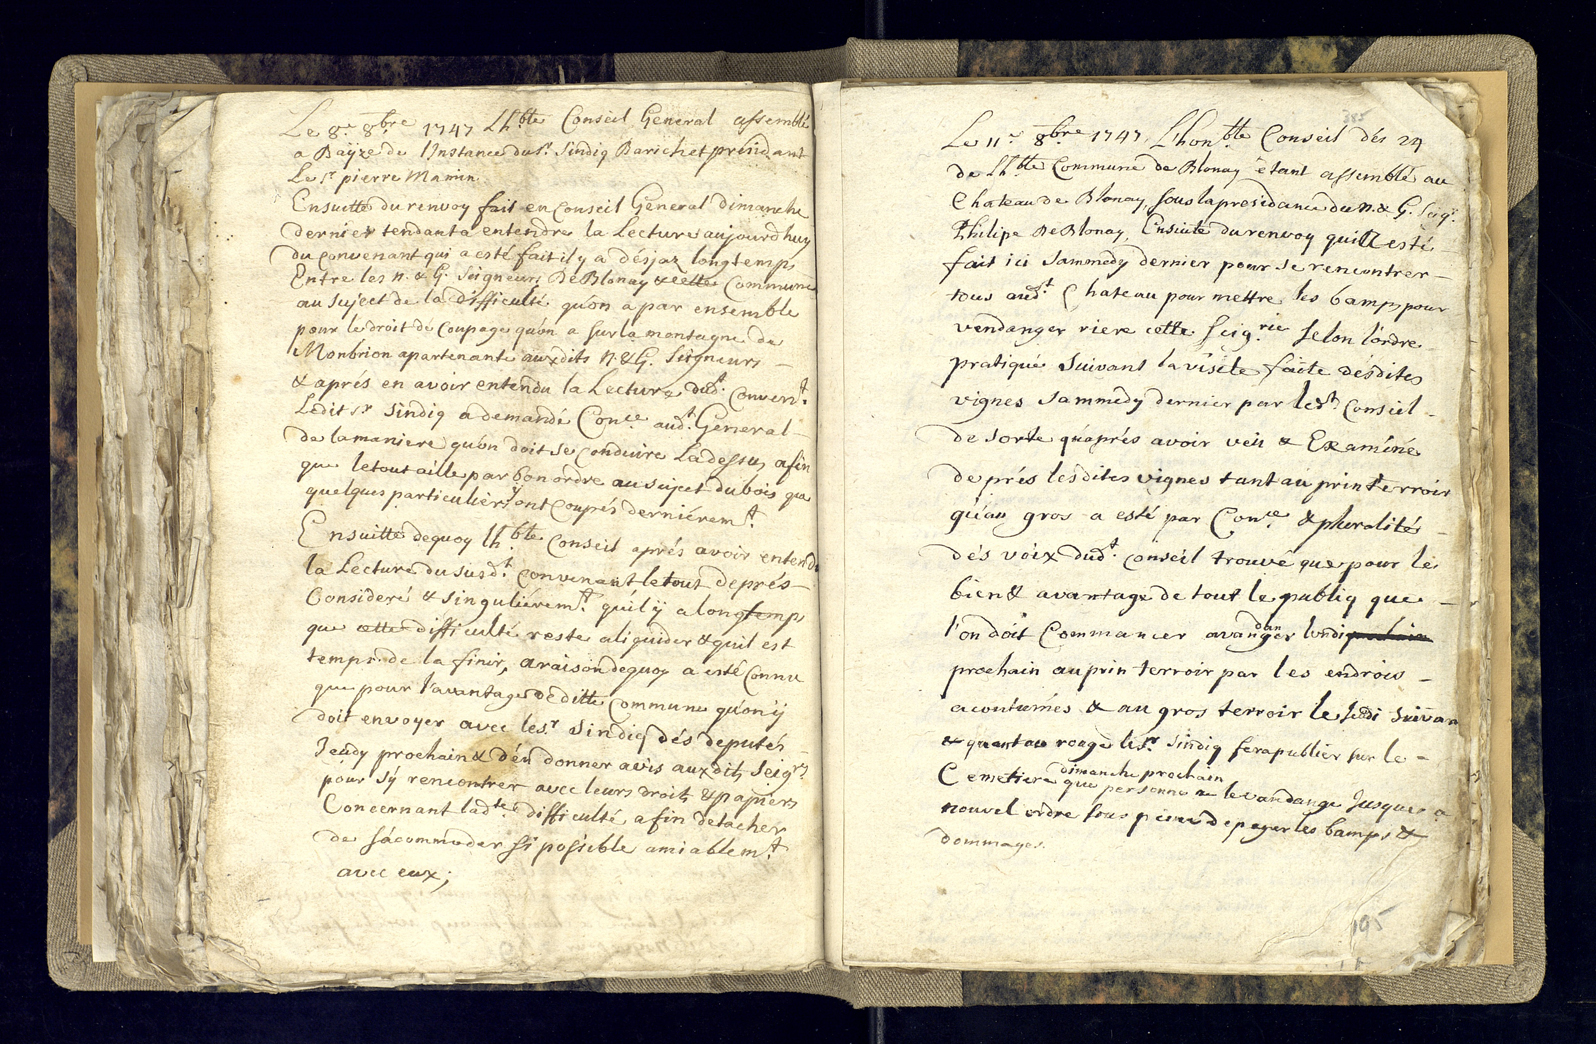 Le 8.e 8bre 1747 Lh.ble Conseil General assemblé
a Bayze de l'Instance du sr. Sindiq Barichet présidant
Le sr pierre Mamin
Ensuitte du renvoy fait en Conseil General dimanche
dernier tendant a entendre la Lecture aujourdhuy
du convenant qui a esté fait il y a désjaz longtemps
Entre les n. & G. Seigneurs De Blonay & cette Commune
au sujet de la difficulté qu'on a par ensemble
pour le droit de Coupage qu'on a sur la montagne de
Monbrion apartenante auxdits N. & G. Seigneurs
& aprés en avoir entendu la Lecture dud.t Conven.t
Ledit sr Sindiq a demandé Con.ce aud.t General
de la maniere qu'on doit se conduire La dessus afin
que le tout aille par bon ordre au sujet du bois que
quelques particuliers y ont Coupés derniérem.t
Ensuitte dequoy lh.ble Conseil aprés avoir entendu
la Lecture du susd.t convenant le tout deprés
Consideré & singuliérem.t qu'il ÿ a longtemps
que cette difficulté reste a liquider & quil est
temps de la finir, a raison dequoy a esté Connu
que pour l'avantage de ditte Commune qu'on ÿ
doit envoyer avec le sr Sindiq dés deputés
Jeudy prochain & d'en donner avis auxdits Seigrs
pour sÿ rencontrer avec leurs droits & papiers
Concernant lad.te difficulté afin detacher
de sácommoder si possible amiablem.t
avec eux;
385
Le 11.e 8bre 1747, Lhon.ble Conseil dés 24
de Lh.ble Commune de Blonay étant assemblé au
Chateau de Blonay, sous la presidance du n. & G. Seigr
Philipe De Blonay, Ensuite du renvoy qui [a] esté
fait ici Sammedy dernier pour se rencontrer
tous aud.t Chateau pour mettre les bamps pour
vendanger riere cette Seig.rie selon l'ordre
pratiqué suivant la visite faite désdites
vignes Sammedy dernier par led.t Conseil
de sorte qu'aprés avoir veü & Examiné
deprés lesdites vignes tant au prin terroir
qu'au gros a esté par Con.ce & pluralité
dés voix dud.t conseil trouvé que pour le
bien & avantage de tout le publiq que
l'on doit Commancer a vandanger lundi prochain
prochain au prin terroir par les endrois
acoutumés & au gros terroir le Jeudi suivan
& quant au rouge le sr. Sindiq fera publier sur le
Cemetiere dimanche prochain que personne ne le vandange Jusques a
nouvel ordre sous piene de payer les bamps &
dommages.
195